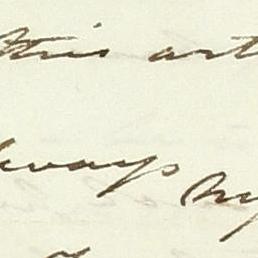 this art
lways my